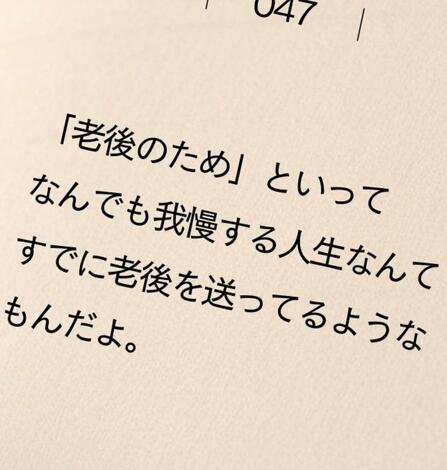 047
「老後のため」といって
なんでも我慢する人生なんて
すでに老後を送ってるような
もんだよ。